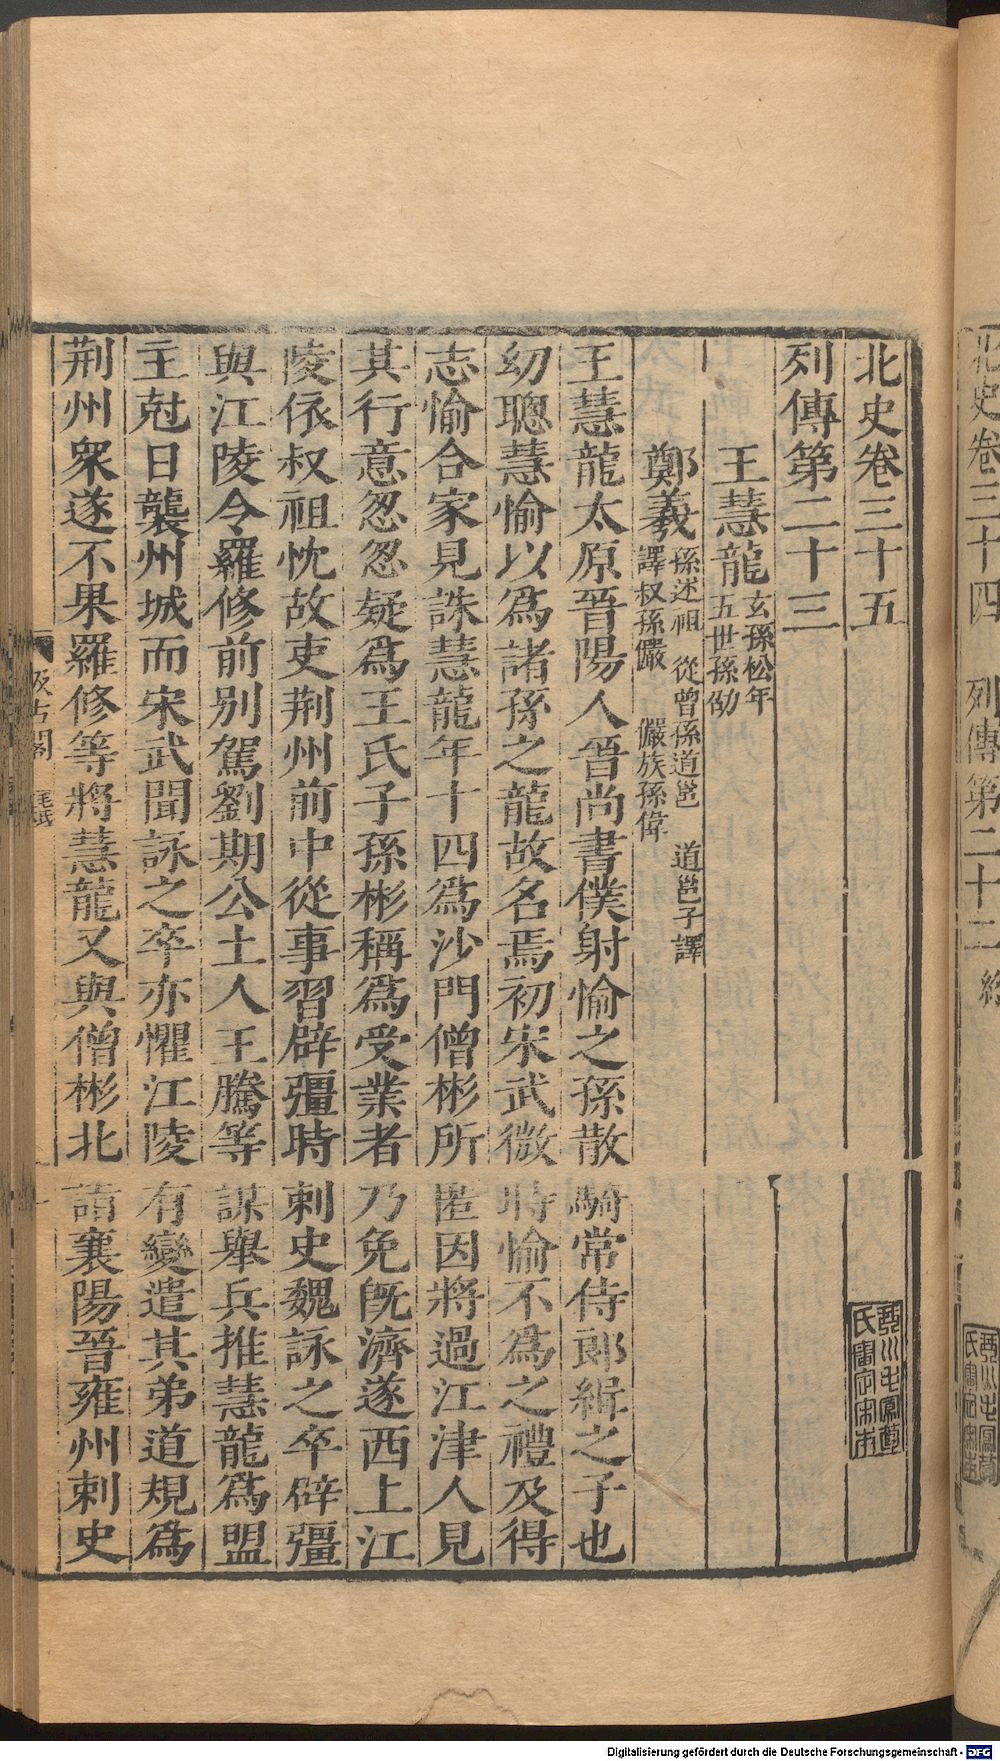 北史卷三十四 列傳第二十二 終
北史卷三十五
琴川毛鳳苞
氏審定宋本
列傳第二十三
王慧龍 玄孫松年
五世孫劭
鄭羲 孫述祖 從曾孫道邕 道邕子譯
譯叔孫儼 儼族孫偉
王慧龍太原晉陽人晉尚書僕射愉之孫散騎常侍郎緝之子也
幼聰慧愉以爲諸孫之龍故名焉初宋武微時愉不爲之禮及得
志愉合家見誅慧龍年十四爲沙門僧彬所匿因將過江津人見
其行意忽忽疑爲王氏子孫彬稱爲受業者乃免旣濟遂西上江
陵依叔祖忱故吏荆州前中從事習辟彊時刺史魏詠之卒辟彊
與江陵令羅修前别駕劉期公土人王騰等謀舉兵推慧龍爲盟
主尅日襲州城而宋武聞詠之卒亦懼江陵有變遣其弟道規爲
荆州衆遂不果羅修等將慧龍又與僧彬北詣襄陽晉雍州刺史
汲古閣 毛氏
Digitalisierung gefördert durch die Deutsche Forschungsgemeinschaft - DFG